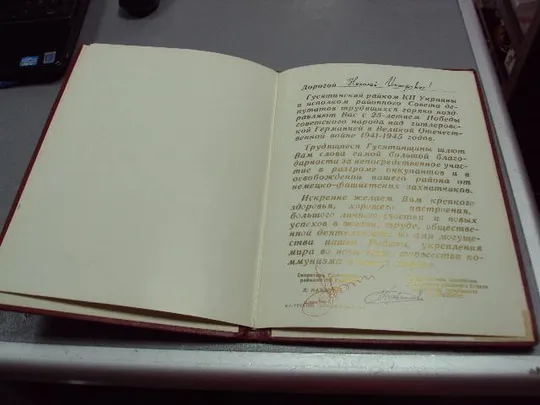 Дорогой Николай
Гусятинский райком КП Украины
и исполком районного Совета де-
путатов трудящихся горячо позд-
равляют Вас с 25-летием Победы
советского народа над гитлеров-
ской Германией в Великой Отечест-
венной войне 1941-1945 годов.
Трудящиеся Гусятинщины шлют
Вам слова самой большой благо-
дарности за непосредственное учас-
тие в разгроме оккупантов и в
освобождении нашего района от
немецко-фашистских захватчиков.
Искренне желаем Вам крепкого
здоровья, хорошего настроения,
большого личного счастья и новых
успехов в жизни, труде, обществен-
ной деятельности во имя могуще-
ства нашей Родины, укрепления
мира во всем мире, торжества ко-
ммунизма
Секретарь
райкома